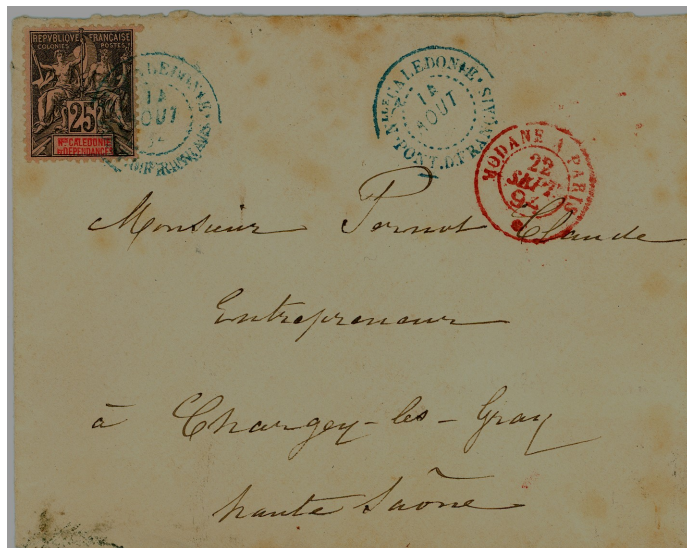 REPUBLIQUE FRANÇAISE
COLONIES POSTES
25
Nlle CALEDONIE
ET DEPENDANCES
AOUT
Nlle CALEDONIE
14
AOUT
PONT. DE FRANCE
MODANE A PARIS
22
SEPT
94
Monsieur Pernot Claude
Entrepreneur
à Chargey-les-Gray
haute Saône